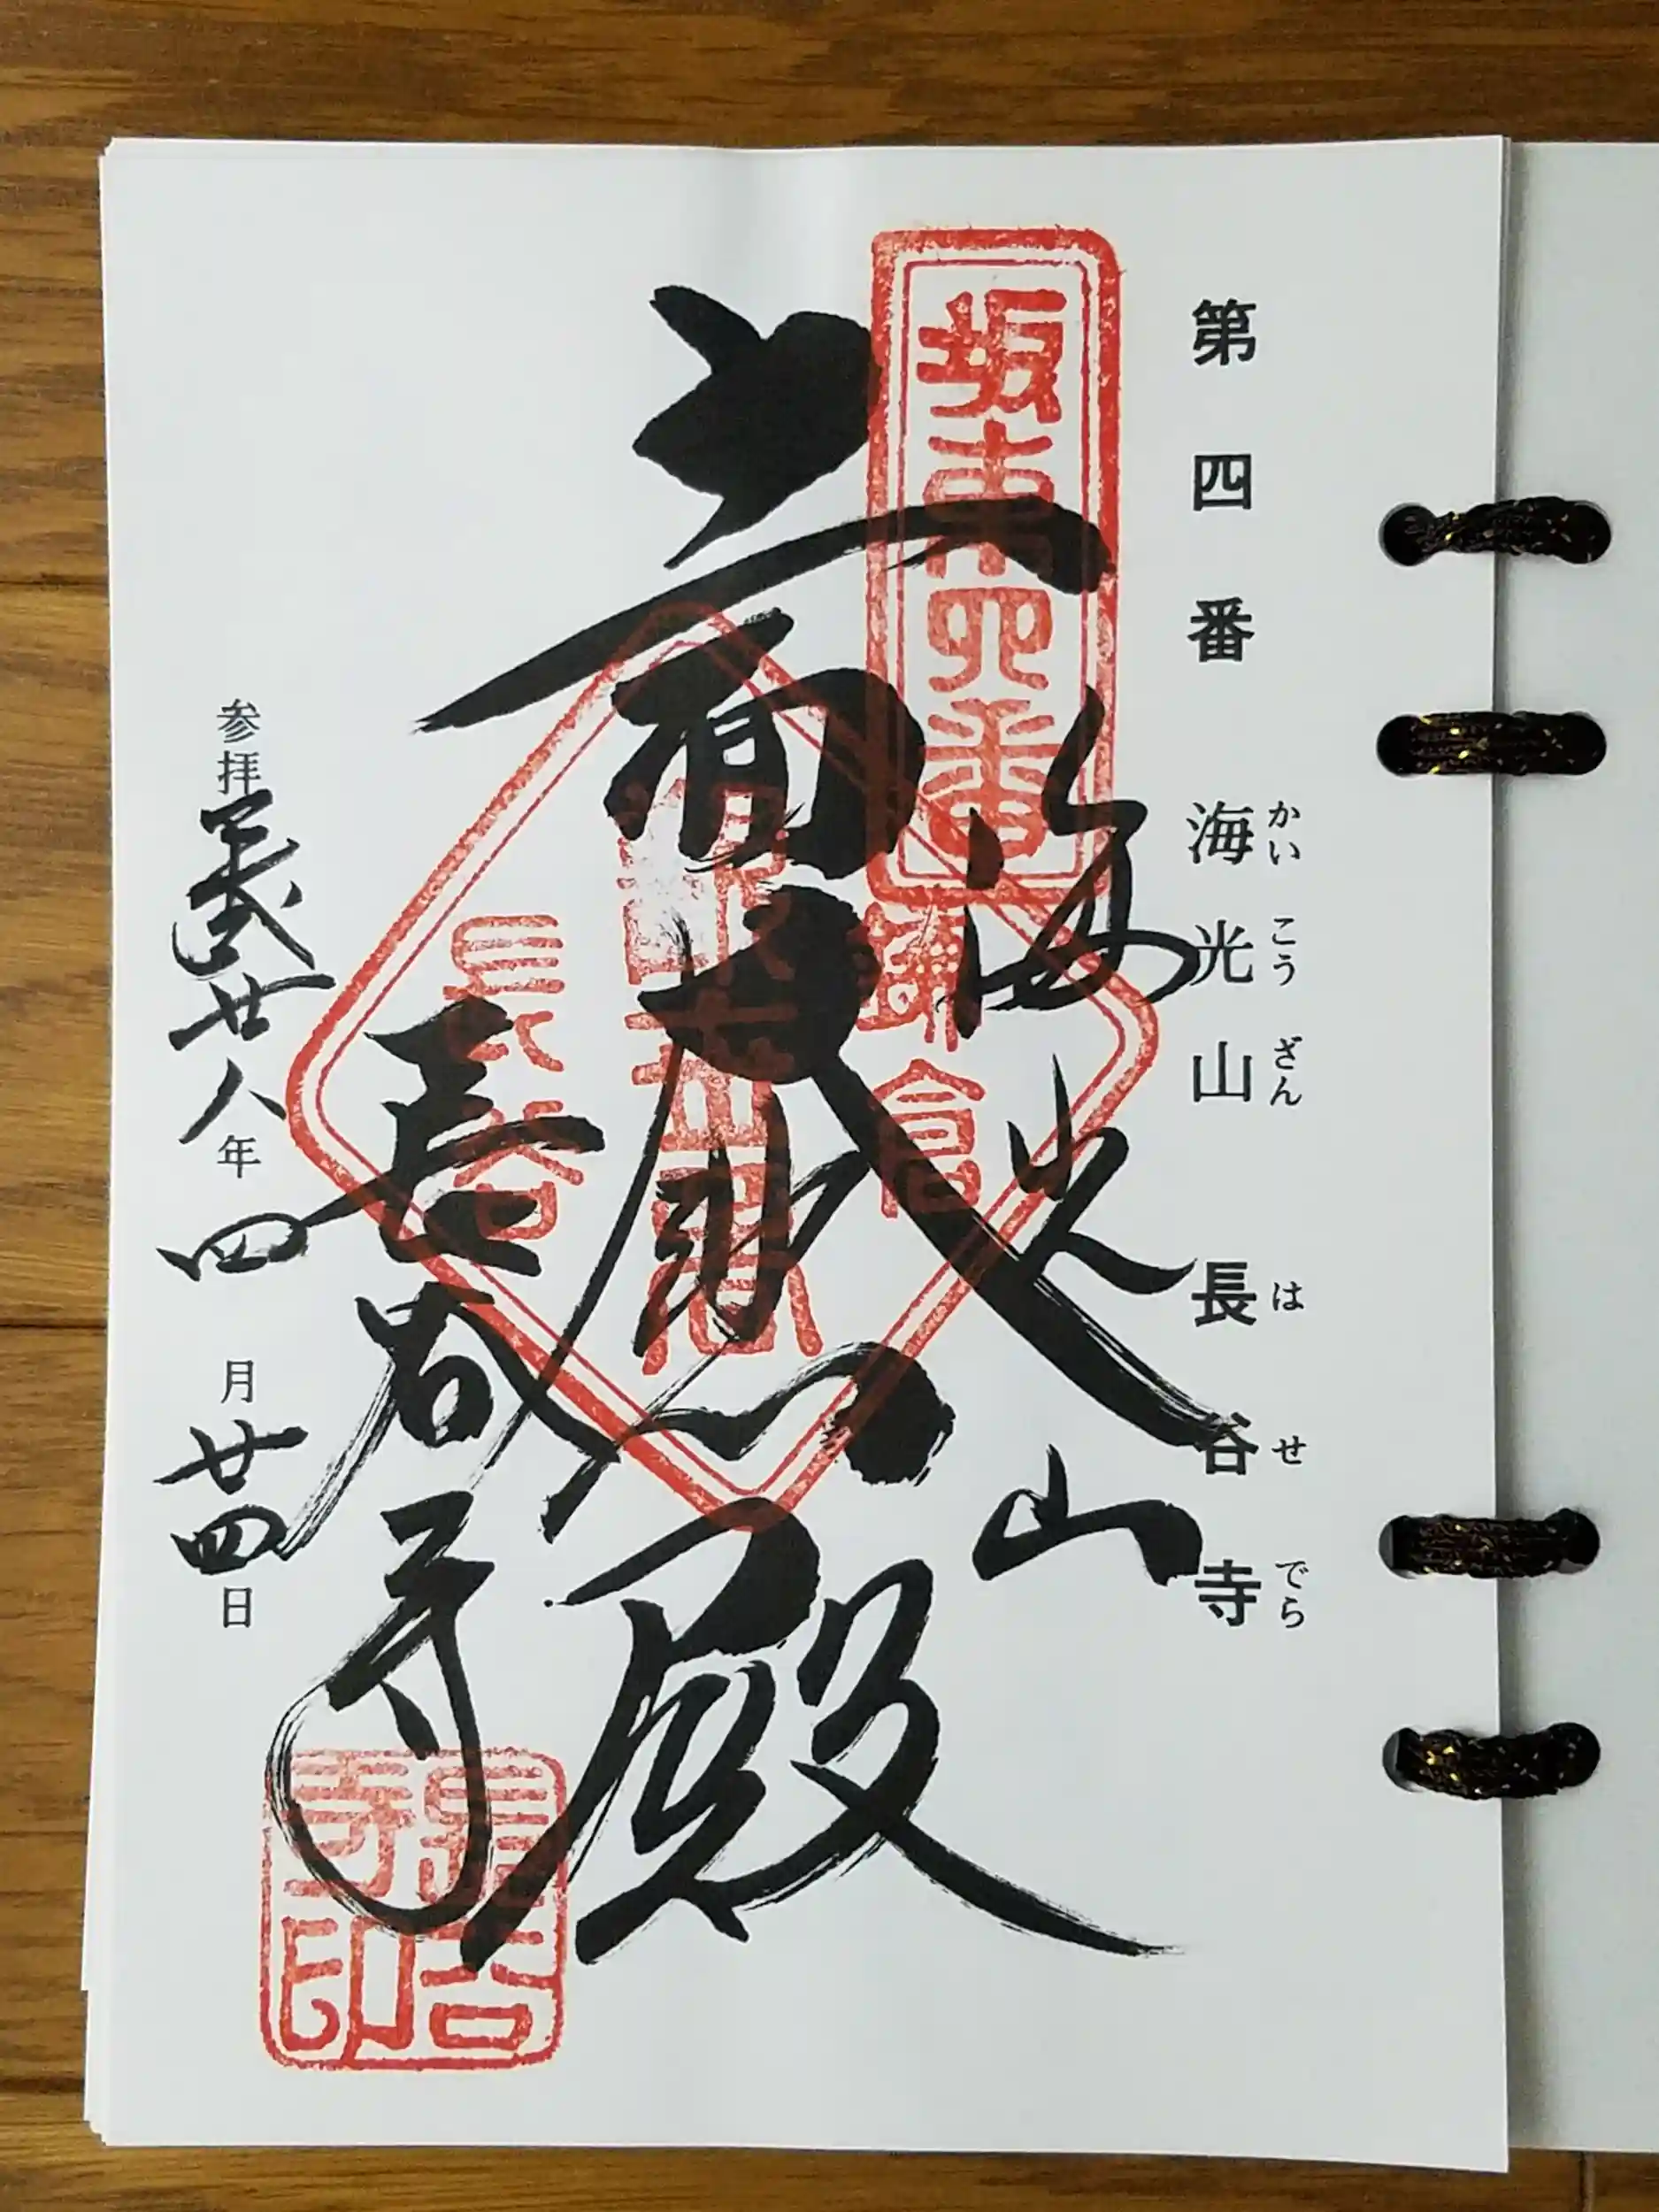 第四番 海光山 長谷寺
かいこうざん はせでら
坂東四番
海光山
鎌倉
十一面大悲殿
長谷
長谷寺
長谷寺印
参拝平成廿八年四月廿四日